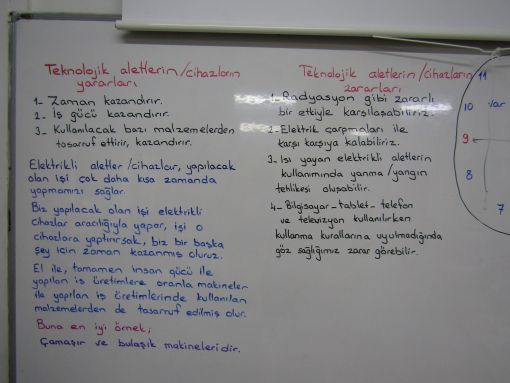 Teknolojik aletlerin/cihazların
yararları
1- Zaman kazandırır.
2- İş gücü kazandırır.
3- Kullanılacak bazı malzemelerden
tasarruf ettirir, kazandırır.
Elektrikli aletler/cihazlar, yapılacak
olan işi çok daha kısa zamanda
yapmamızı sağlar.
Biz yapılacak olan işi elektrikli
cihazlar aracılığıyla yapar, işi o
cihazlara yaptırırsak, biz bir başka
şey için zaman kazanmış oluruz.
El ile, tamamen insan gücü ile
yapılan iş üretimlere oranla makineler
ile yapılan iş üretimlerinde kullanılan
malzemelerden de tasarruf edilmiş olur.
Buna en iyi örnek;
Çamaşır ve bulaşık makineleridir.
Teknolojik aletlerin/cihazların
zararları
1- Radyasyon gibi zararlı
bir etkiyle karşılaşabiliriz.
2- Elektrik çarpmaları ile
karşı karşıya kalabiliriz.
3- Isı yayan elektrikli aletlerin
kullanımında yanma/yangın
tehlikesi oluşabilir.
4- Bilgisayar-tablet-telefon
ve televizyon kullanılırken
kullanma kurallarına uyulmadığında
göz sağlığımız zarar görebilir.
11
10 var
9
8
7